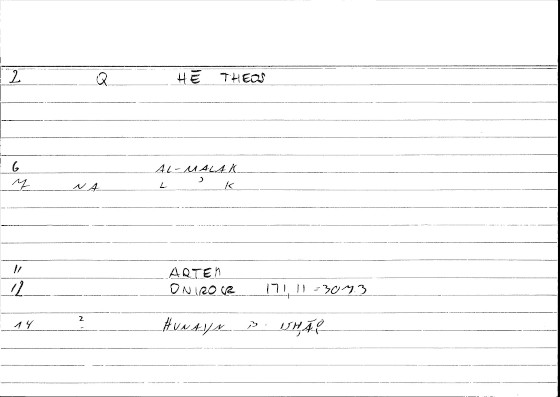 2 Q HĒ THEOS
6 AL-MALAK
7 NA L ʾ K
11 ARTEM
12 ONIROCR 171,11
14 ? ḤUNAYN B. ISḤĀQ